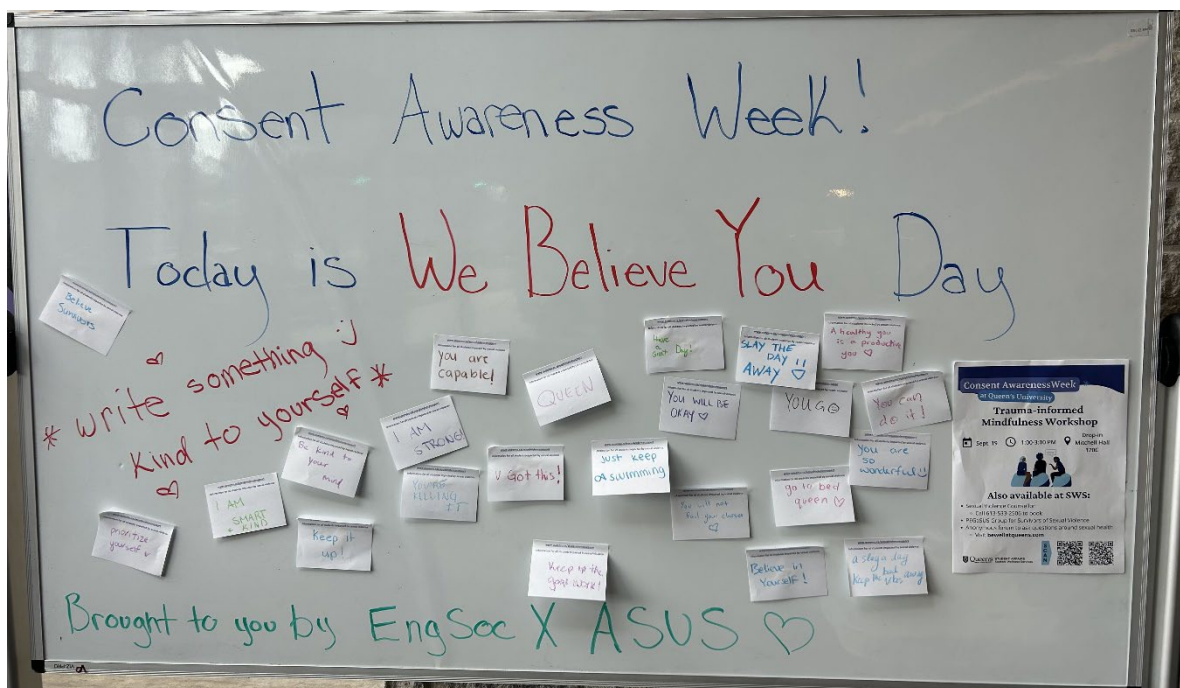 Consent Awareness Week!
Today is We Believe You Day
Believe
Survivors
* Write something :)
Kind to yourself *
you are
capable!
QUEEN
Have
a
Day!
SLAY THE
DAY !!
AWAY
A healthy you
is a productive
you
I AM
STRONG!
YOU WILL BE
OKAY
YOU GO
You can
do it!
Be kind to
your
mind
YOU'RE
KILLING
IT
U Got this!
Just keep
swimming
You are
so
wonderful
I AM
SMART
+ KIND
go to bed
queen
You will not
prioritize
yourself
Keep it
up!
Keep up the
good work!
Believe in
Yourself!
a slay a day
Kep the vibes
Consent Awareness Week
at Queen's University
Trauma-informed
Mindfulness Workshop
Sept. 19
1:00-3:30 PM
Drop-in
Mitchell Hall
Also available at SWS:
• Sexual Violence Counsellor
to book
Group for Survivors of Sexual Violence
to ask questions around sexual health
Visit bewellatqueens.com
SCAN
Queen's
Brought to you by EngSoc X ASUS